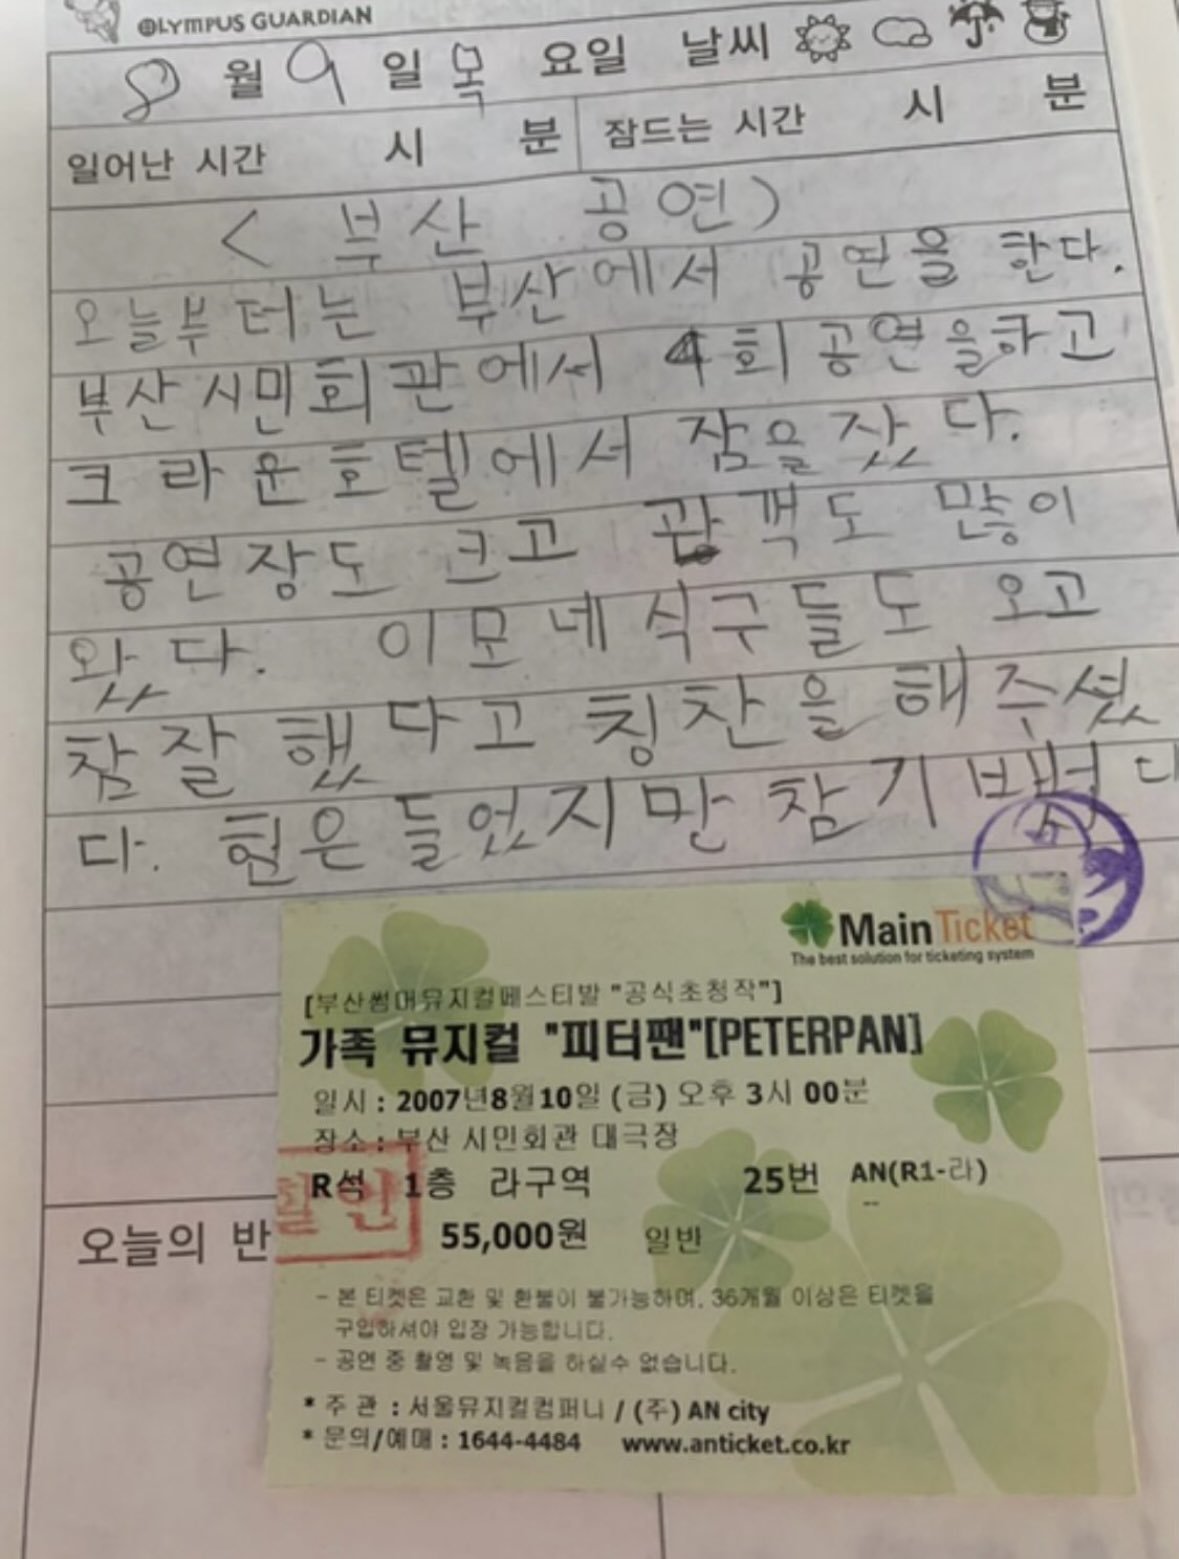 OLYMPUS GUARDIAN
8월 9일 목요일 날씨
일어난 시간 시 분 잠드는 시간 시 분
< 부산 공연>
오늘부터는 부산에서 공연을 한다.
부산시민회관에서 4회공연을하고
크라운호텔에서 잠을잤다.
공연장도 크고 관객도 많이
왔다. 이모네식구들도 오고
참잘했다고 칭찬을해주셨
다. 힘은들었지만 참기뻤다
MainTicket
The best solution for ticketing system
[부산썸머뮤지컬페스티발 "공식초청작"]
가족 뮤지컬 "피터팬"[PETERPAN]
일시 : 2007년8월10일 (금) 오후 3시 00분
장소 : 부산 시민회관 대극장
R석 1층 라구역 25번 AN(R1-라)
--
할인
오늘의 반
55,000원 일반
- 본 티켓은 교환 및 환불이 불가능하며, 36개월 이상은 티켓을
구입하셔야 입장 가능합니다.
- 공연 중 촬영 및 녹음을 하실수 없습니다.
* 주 관 : 서울뮤지컬컴퍼니 / (주) AN city
* 문의/예매 : 1644-4484 www.anticket.co.kr